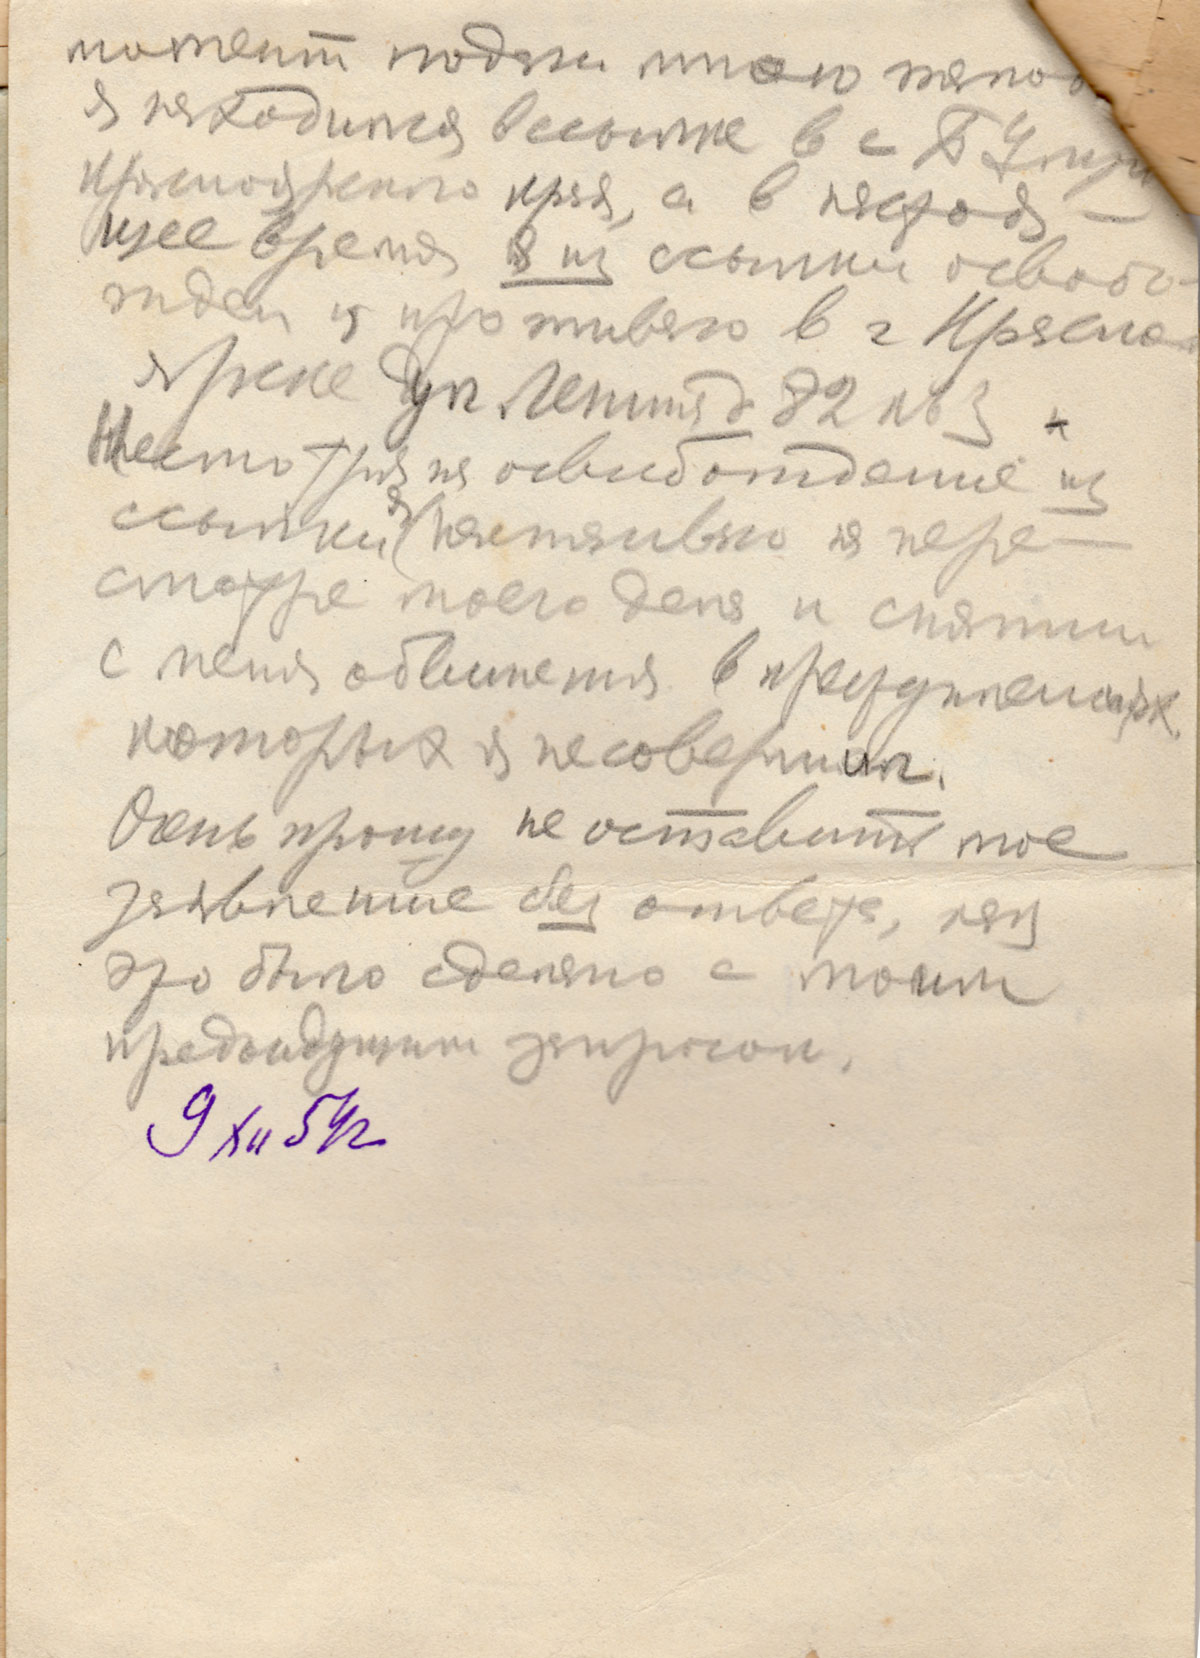 момент подачи мною жалоб
я находился в ссылке в с Б Улуй
Красноярского края, а в настоя-
щее время я из ссылки освобо-
жден и проживаю в г Красно-
ярске ул Ленина д 82 кв 3
Несмотря на освобождение из
ссылки я настаиваю на пере-
смотре моего дела и снятии
с меня обвинения в преступлениях
которых я не совершил.
Очень прошу не оставить мое
заявление без ответа, как
это было сделано с моим
предыдущим запросом.
9 XII 54г